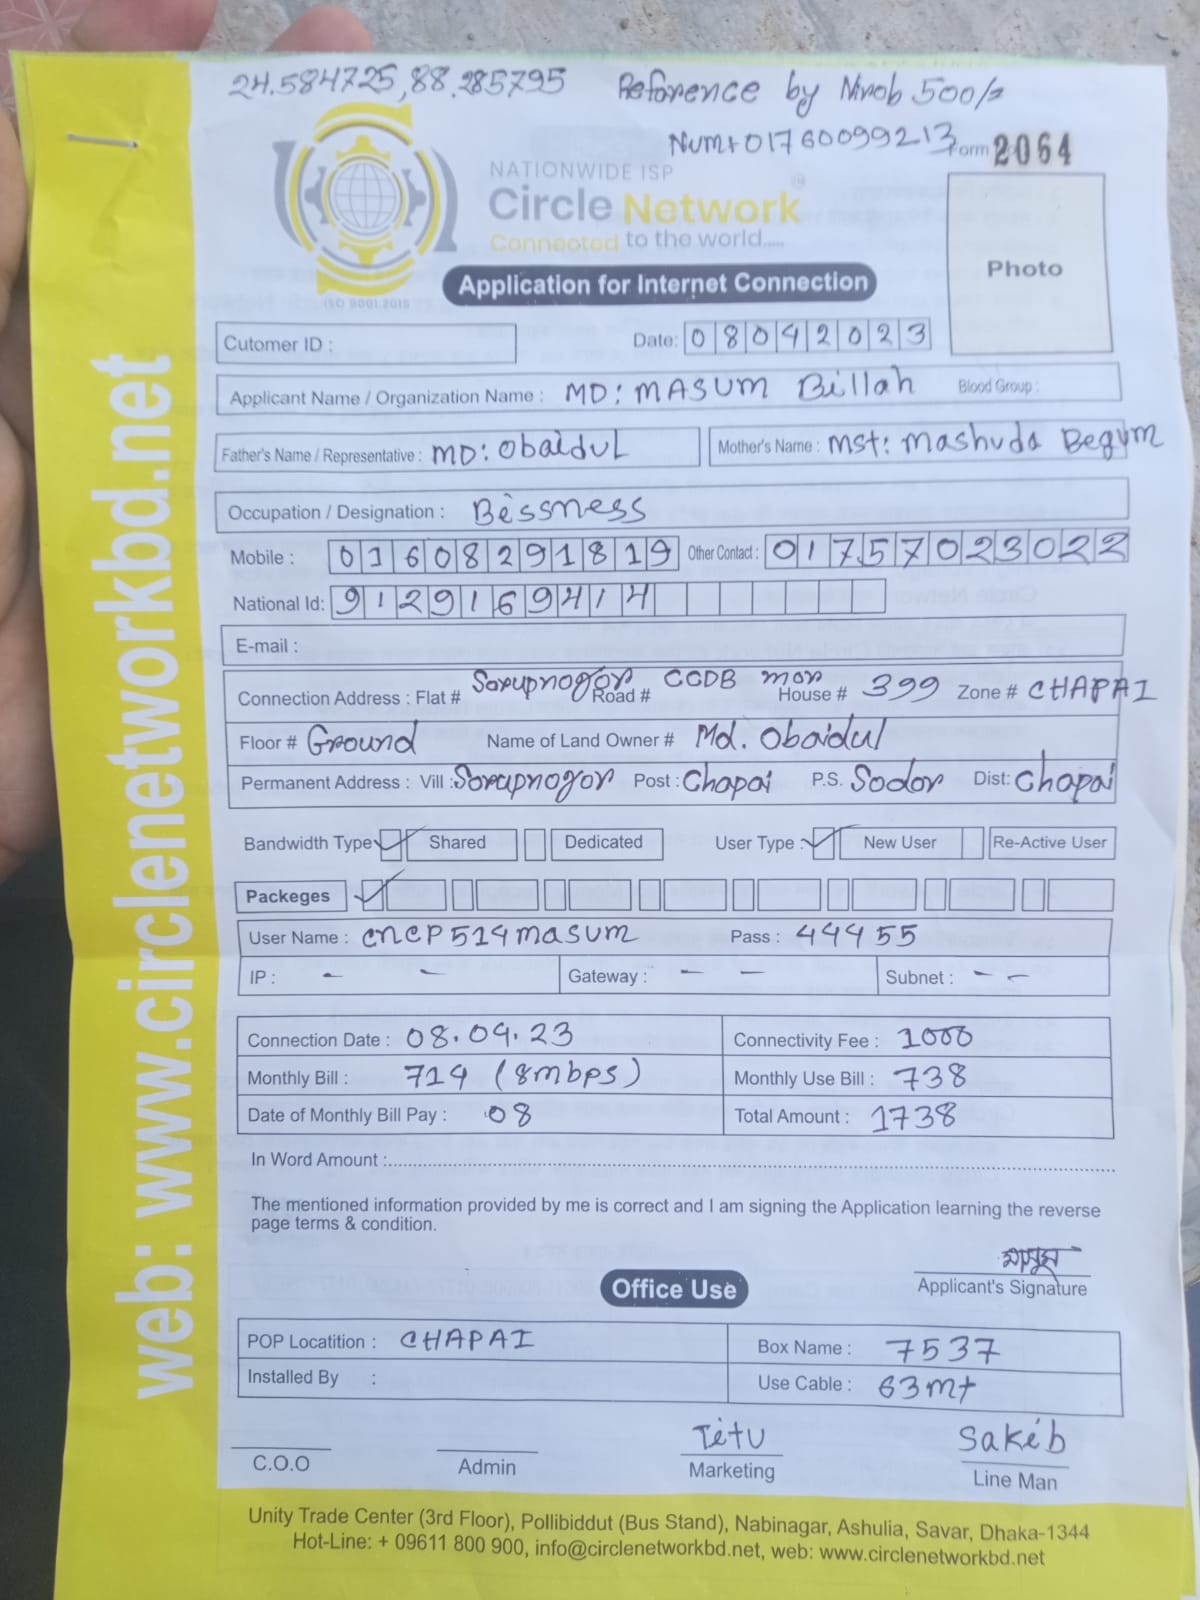 24.584725,88.285795 Reforence by Nirob 500/=
Num+01760099213
Form 2064
NATIONWIDE ISP
Circle Network
Connected to the world.....
ISO 9001:2015
Application for Internet Connection
Photo
Cutomer ID :
Date: 08042023
Applicant Name / Organization Name : MD: MASUM Billah Blood Group :
Father's Name / Representative : MD: ObaidUL Mother's Name : Mst: Mashuda Begum
Occupation / Designation : Bissness
Mobile : 01608291819 Other Contact : 01757023022
National Id: 9129169414
E-mail :
Connection Address : Flat # Sorupnogor Road # CCDB mor House # 399 Zone # CHAPAI
Floor # Ground Name of Land Owner # Md. Obaidul
Permanent Address : Vill : Sorupnogor Post : Chapai P.S. Sodor Dist: Chapai
Bandwidth Type Shared Dedicated User Type : New User Re-Active User
Packeges
User Name : CNCP514masum Pass : 44455
IP : - - Gateway : - - Subnet : - -
Connection Date : 08.04.23 Connectivity Fee : 1000
Monthly Bill : 714 (8mbps) Monthly Use Bill : 738
Date of Monthly Bill Pay : 08 Total Amount : 1738
In Word Amount :
The mentioned information provided by me is correct and I am signing the Application learning the reverse
page terms & condition.
মাসুম
Applicant's Signature
Office Use
POP Locatition : CHAPAI Box Name : 7537
Installed By : Use Cable : 63mt
Titu Sakib
C.O.O Admin Marketing Line Man
Unity Trade Center (3rd Floor), Pollibiddut (Bus Stand), Nabinagar, Ashulia, Savar, Dhaka-1344
Hot-Line: + 09611 800 900, info@circlenetworkbd.net, web: www.circlenetworkbd.net
web: www.circlenetworkbd.net